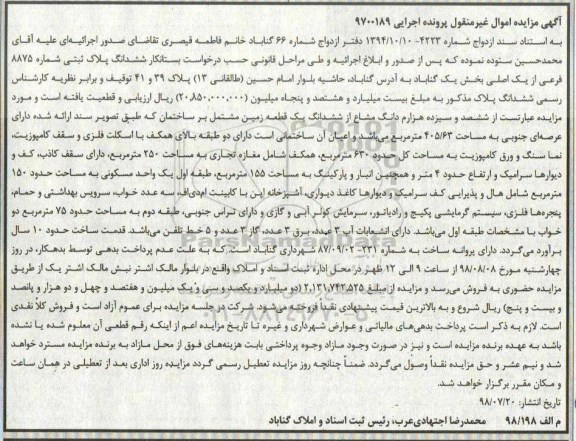 آگهی مزایده اموال غیرمنقول پرونده اجرایی ۹۷۰۰۱۸۹
به استناد سند ازدواج شماره ۴۲۳۳- ۱۳۹۴/۱۰/۱۰ دفتر ازدواج شماره ۶۶ گناباد خانم فاطمه قیصری تقاضای صدور اجرائیه‌ای علیه آقای
محمدحسین ستوده نموده که پس از صدور و ابلاغ اجرائیه و طی مراحل قانونی حسب درخواست بستانکار ششدانگ پلاک ثبتی شماره ۸۸۷۵
فرعی از یک اصلی بخش یک گناباد به آدرس گناباد، حاشیه بلوار امام حسین (طالقانی ۱۳) پلاک ۳۹ و ۴۱ توقیف و برابر نظریه کارشناس
رسمی ششدانگ پلاک مذکور به مبلغ بیست میلیارد و هشتصد و پنجاه میلیون (۲۰،۸۵۰،۰۰۰،۰۰۰) ریال ارزیابی و قطعیت یافته است و مورد
مزایده عبارتست از ششصد و سیزده هزارم دانگ مشاع از ششدانگ یک قطعه زمین مشتمل بر ساختمان که طبق تصویر سند ارائه شده دارای
عرصه‌ای جنوبی به مساحت ۴۰۵/۶۳ مترمربع می‌باشد و اعیان آن ساختمانی است دارای دو طبقه بالای همکف با اسکلت فلزی و سقف کامپوزیت،
نما سنگ و ورق کامپوزیت به مساحت کل حدود ۶۳۰ مترمربع، همکف شامل مغازه تجاری به مساحت ۲۵۰ مترمربع، دارای سقف کاذب، کف و
دیوارها سرامیک و ارتفاع حدود ۴ متر و همچنین انبار و پارکینگ به مساحت ۱۵۵ مترمربع، طبقه اول یک واحد مسکونی به مساحت حدود ۱۵۰
مترمربع شامل هال و پذیرایی کف سرامیک و دیوارها کاغذ دیواری، آشپزخانه اپن با کابینت ام‌دی‌اف، سه عدد خواب، سرویس بهداشتی و حمام،
پنجره‌ها فلزی، سیستم گرمایشی پکیج و رادیاتور، سرمایش کولر آبی و گازی و دارای تراس جنوبی، طبقه دوم به مساحت حدود ۷۵ مترمربع دو
خواب با مشخصات طبقه اول می‌باشد. دارای انشعابات آب ۳ عدد، برق ۳ عدد، گاز ۳ عدد و ۵ خط تلفن می‌باشد. قدمت ساخت حدود ۱۰ سال
برآورد می‌گردد. دارای پروانه ساخت به شماره ۳۳۱- ۸۷/۰۹/۰۲ شهرداری گناباد است. که به علت عدم پرداخت بدهی توسط بدهکار، در روز
چهارشنبه مورخ ۹۸/۰۸/۰۸ از ساعت ۹ الی ۱۲ ظهر در محل اداره ثبت اسناد و املاک واقع در بلوار مالک اشتر نبش مالک اشتر یک از طریق
مزایده حضوری به فروش می‌رسد و مزایده از مبلغ ۲،۱۳۱،۷۴۲،۵۲۵ (دو میلیارد و یکصد و سی و یک میلیون و هفتصد و چهل و دو هزار و پانصد
و بیست و پنج) ریال شروع و به بالاترین قیمت پیشنهادی نقداً فروخته می‌شود. شرکت در جلسه مزایده برای عموم آزاد است و فروش کلاً نقدی
است. لازم به ذکر است پرداخت بدهی‌های مالیاتی و عوارض شهرداری و غیره تا تاریخ مزایده اعم از اینکه رقم قطعی آن معلوم شده یا نشده
باشد به عهده برنده مزایده است و نیز در صورت وجود مازاد وجوه پرداختی بابت هزینه‌های فوق از محل مازاد به برنده مزایده مسترد خواهد
شد و نیم عشر و حق مزایده نقداً وصول می‌گردد. ضمناً چنانچه روز مزایده تعطیل رسمی گردد مزایده روز اداری بعد از تعطیلی در همان ساعت
و مکان مقرر برگزار خواهد شد.
تاریخ انتشار: ۹۸/۰۷/۲۰
م الف ۹۸/۱۹۸ محمدرضا اجتهادی‌عرب، رئیس ثبت اسناد و املاک گناباد